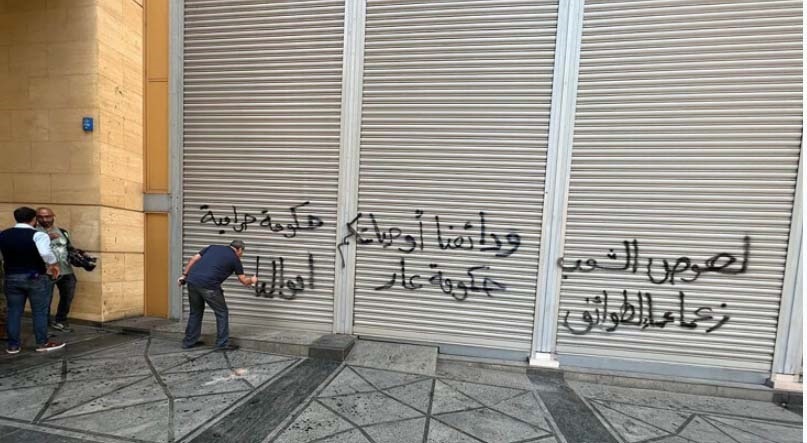 لصوص الشعب
زعماء الطوائف
ودائعنا أو حياتكم
حكومة عار
حكومة حرامية
اموالنا